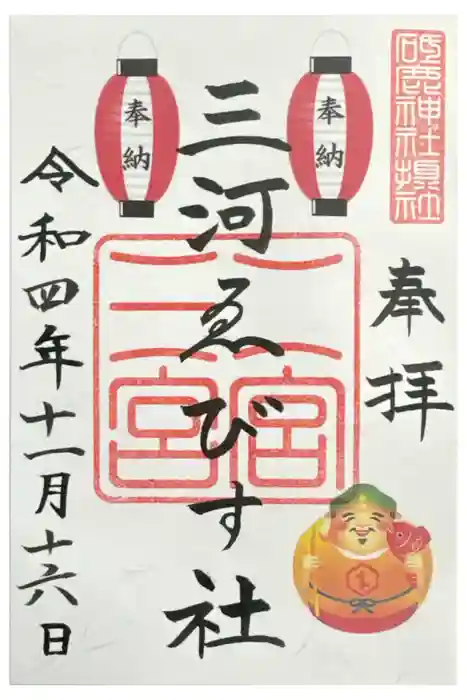 砥鹿神社摂社
奉拝
奉納
奉納
三河ゑびす社
二宮
三宮
令和四年十一月十六日